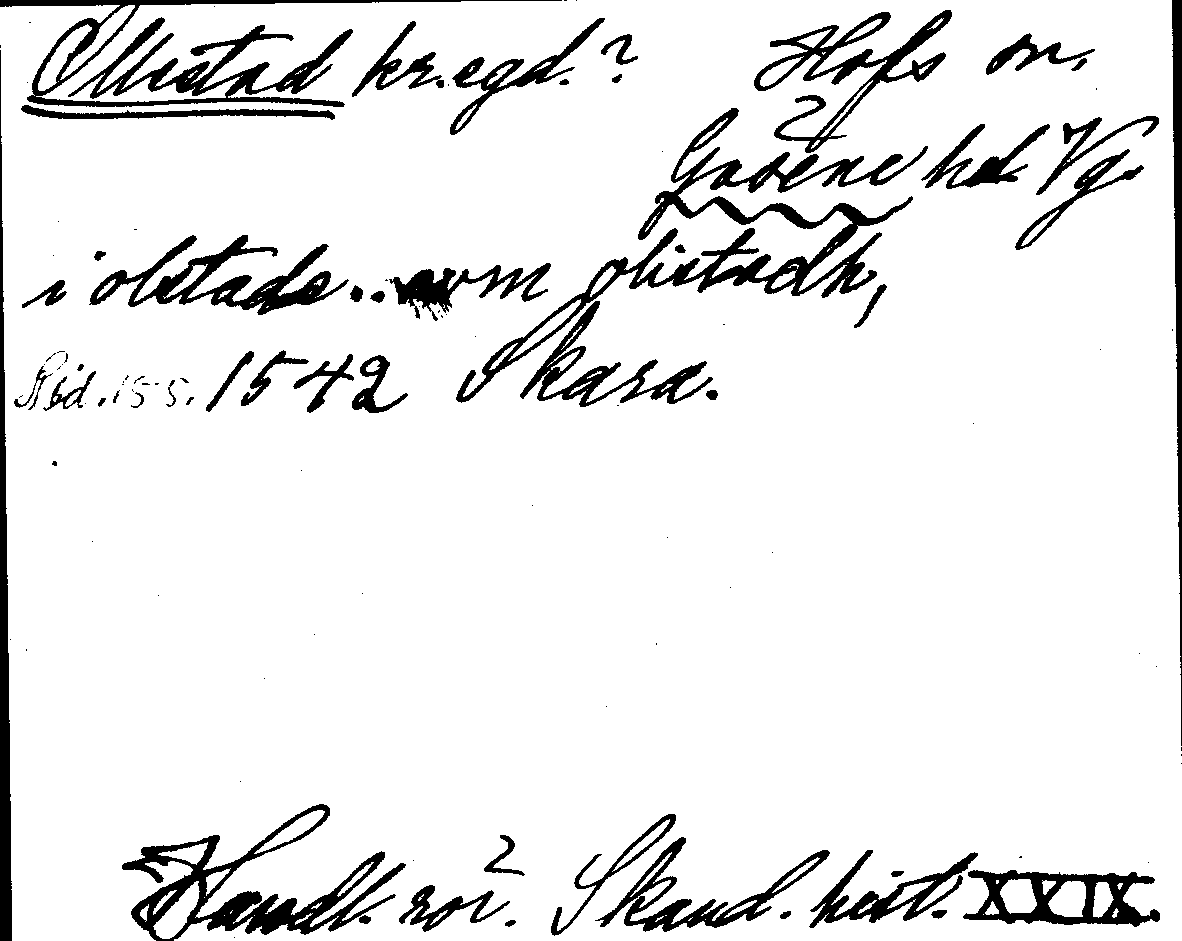 Ollestad kr.egd.? Hofs sn,
Gäsene hd Vg.
i olstade .. om olistadh,
Sid. 155. 1542 Skara.
Handl. rör. Skand. hist. XXIX.